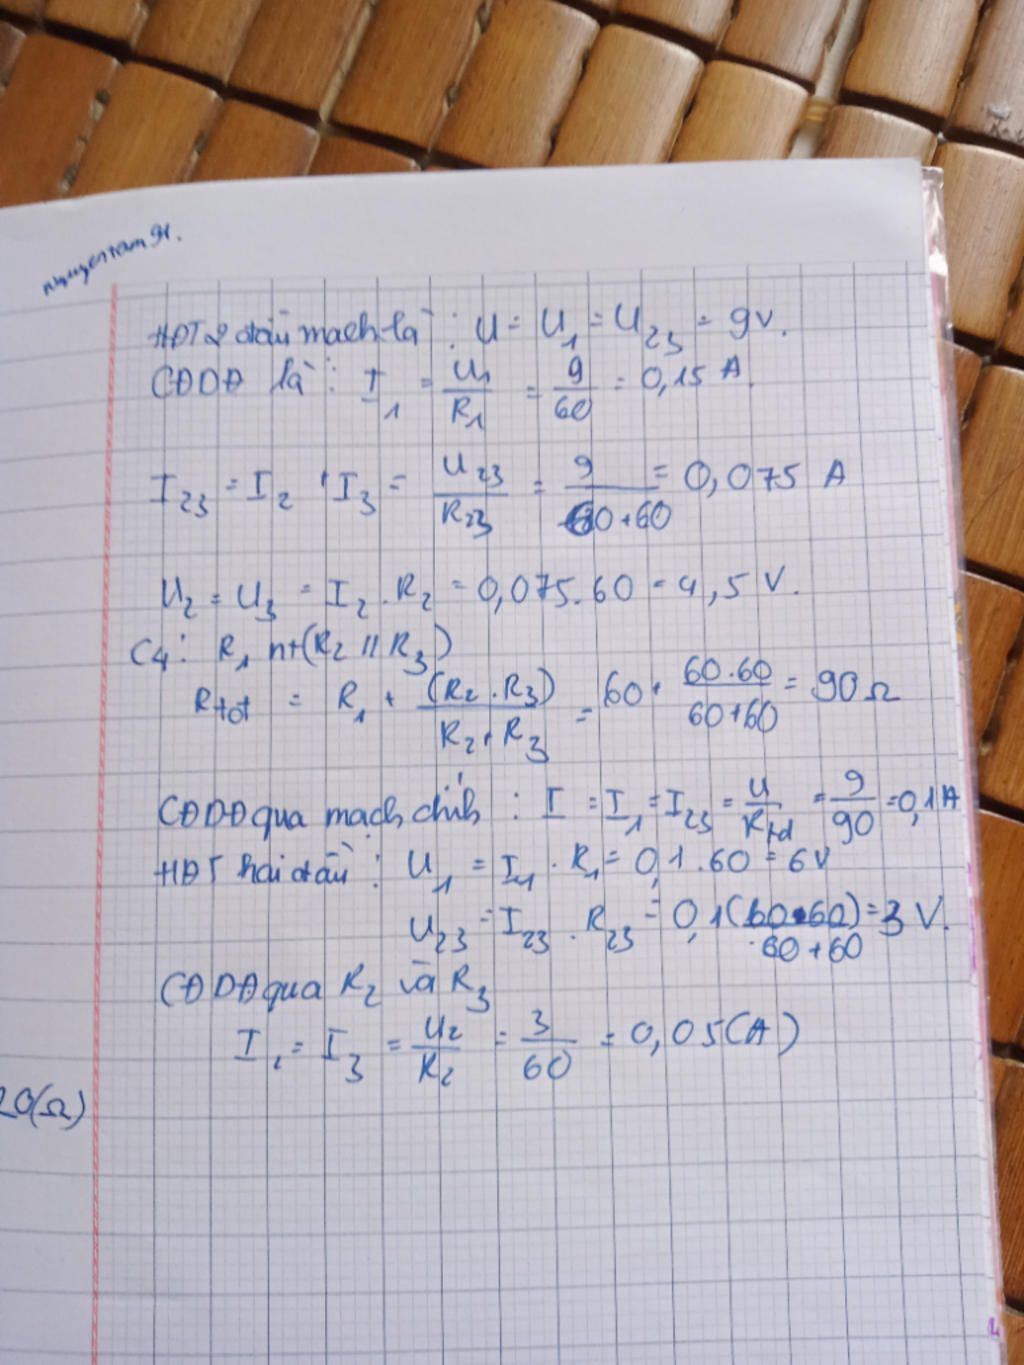 nguyentam91.
HĐT 2 đầu mạch là : U = U₁ = U₂₃ = 9V.
CĐDĐ là : I₁ = U₁/R₁ = 9/60 = 0,15 A.
I₂₃ = I₂ = I₃ = U₂₃/R₂₃ = 9/(60+60) = 0,075 A
U₂ = U₃ = I₂ . R₂ = 0,075.60 = 4,5 V.
C4: R₁ nt (R₂ // R₃)
Rtđt = R₁ + (R₂ . R₃)/(R₂ + R₃) = 60 + (60.60)/(60+60) = 90 Ω
CĐDĐ qua mạch chính : I = I₁ = I₂₃ = U/Rtđ = 9/90 = 0,1A
HĐT hai đầu : U₁ = I₁ . R₁ = 0,1.60 = 6V
U₂₃ = I₂₃ . R₂₃ = 0,1(60.60)/(60+60) = 3 V.
CĐDĐ qua R₂ và R₃
I₂ = I₃ = U₂/R₂ = 3/60 = 0,05(A)
20(Ω)